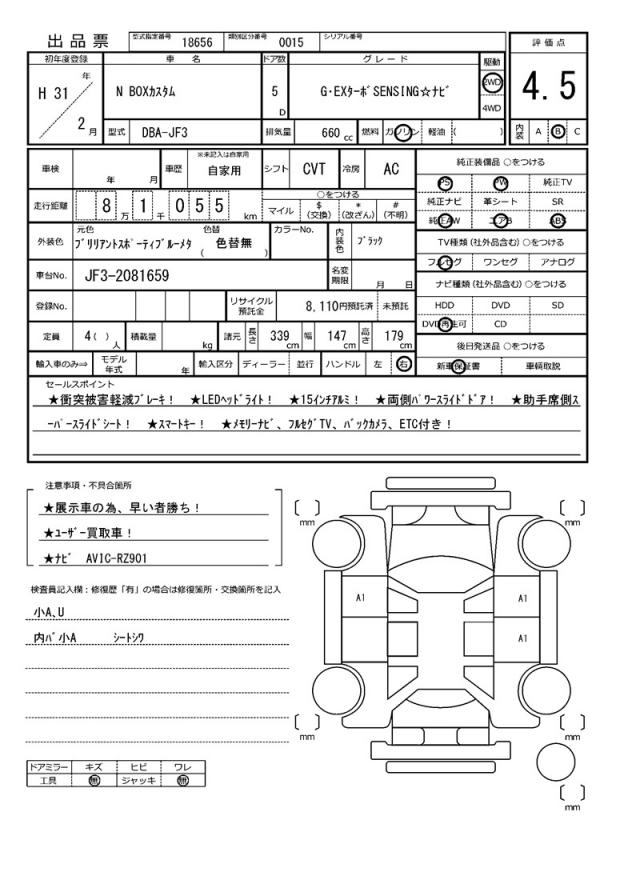 出品票 型式指定番号 18656 類別区分番号 0015 シリアル番号
初年度登録 車 名 ドア数 グレード 駆動 評価点
H 31 年 N BOXカスタム 5 D G・EXターボSENSING☆ナビ 2WD 4.5
4WD
2 月 型式 DBA-JF3 排気量 660 cc 燃料 ガソリン 軽油 ( ) 内装 A B C
車検 年 月 車歴 ※未記入は自家用 自家用 シフト CVT 冷房 AC 純正装備品 ○をつける
PS PW 純正TV
走行距離 8 万 1 千 0 5 5 km ○をつける 純正ナビ 革シート SR
マイル $ (交換) * (改ざん) # (不明) 純正AW エアB ABS
外装色 元色 ブリリアントスポーティブルーメタ 色替 ( 色替無 ) カラーNo. 内装色 ブラック TV種類 (社外品含む) ○をつける
フルセグ ワンセグ アナログ
車台No. JF3-2081659 名変期限 月 日 ナビ種類 (社外品含む) ○をつける
登録No. リサイクル預託金 8,110円預託済 未預託 HDD DVD SD
DVD再生可 CD
定員 4( ) 人 積載量 kg 諸元 長さ 339 cm 幅 147 cm 高さ 179 cm 後日発送品 ○をつける
輸入車のみ⇒ モデル年式 年 輸入区分 ディーラー 並行 ハンドル 左 右 新車保証書 車輌取説
セールスポイント
★衝突被害軽減ブレーキ! ★LEDヘッドライト! ★15インチアルミ! ★両側パワースライドドア! ★助手席側ス
ーパースライドシート! ★スマートキー! ★メモリーナビ、フルセグTV、バックカメラ、ETC付き!
注意事項・不具合箇所
★展示車の為、早い者勝ち!
★ユーザー買取車!
★ナビ AVIC-RZ901
検査員記入欄:修復歴「有」の場合は修復箇所・交換箇所を記入
小A、U
内バ小A シートシワ
ドアミラー キズ ヒビ ワレ
工具 無 ジャッキ 無
mm mm
A1 A1
A1
mm mm
mm